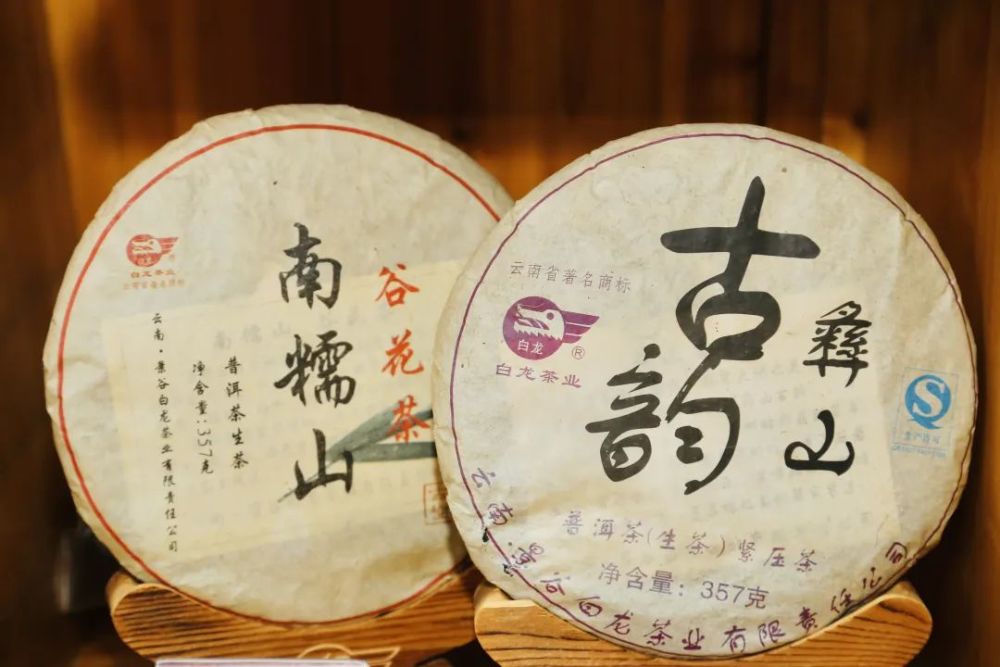 白龙
®
白龙茶业
云南省著名商标
南糯山
谷花茶
普洱茶生茶
净含量:357克
云南·景谷白龙茶业有限责任公司
云南省著名商标
白龙
®
白龙茶业
古韵
彝山
普洱茶(生茶)紧压茶
净含量:357克
云南景谷白龙茶业有限责任公司